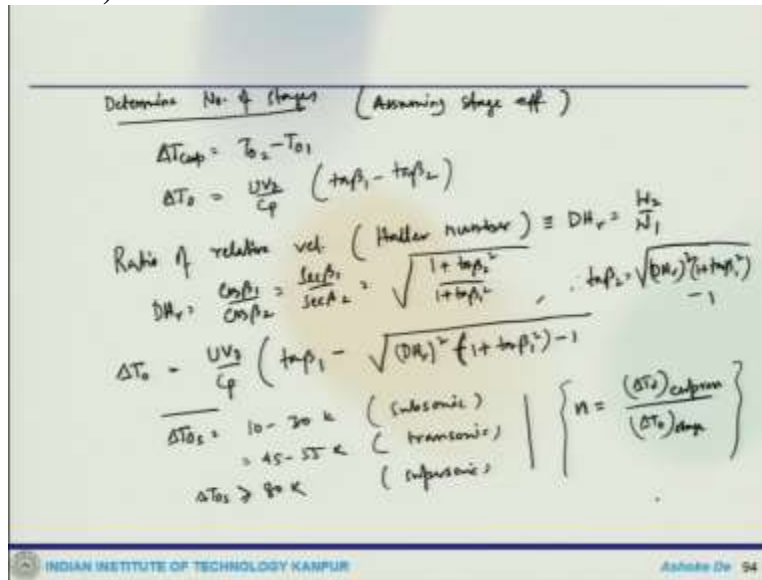 Determine No. of stages (Assuming stage eff)
ΔTcomp = T02 - T01
ΔT0 = UVz/Cp (tanβ1 - tanβ2)
Ratio of relative vel. (Haller number) ≡ DHr = W2/W1
DHr = cosβ1/cosβ2 = secβ2/secβ1 = √((1 + tanβ2²)/(1 + tanβ1²)), tanβ2 = √((DHr)²(1+tanβ1²) - 1
ΔT0 = UVz/Cp (tanβ1 - √((DHr)² (1 + tanβ1²) - 1
ΔT0s = 10 - 30 K (subsonic)
= 45 - 55 K (transonic)
ΔT0s ≥ 80 K (supersonic)
{ n = (ΔT0)compressor/(ΔT0)stage }
INDIAN INSTITUTE OF TECHNOLOGY KANPUR
Ashoke De 94